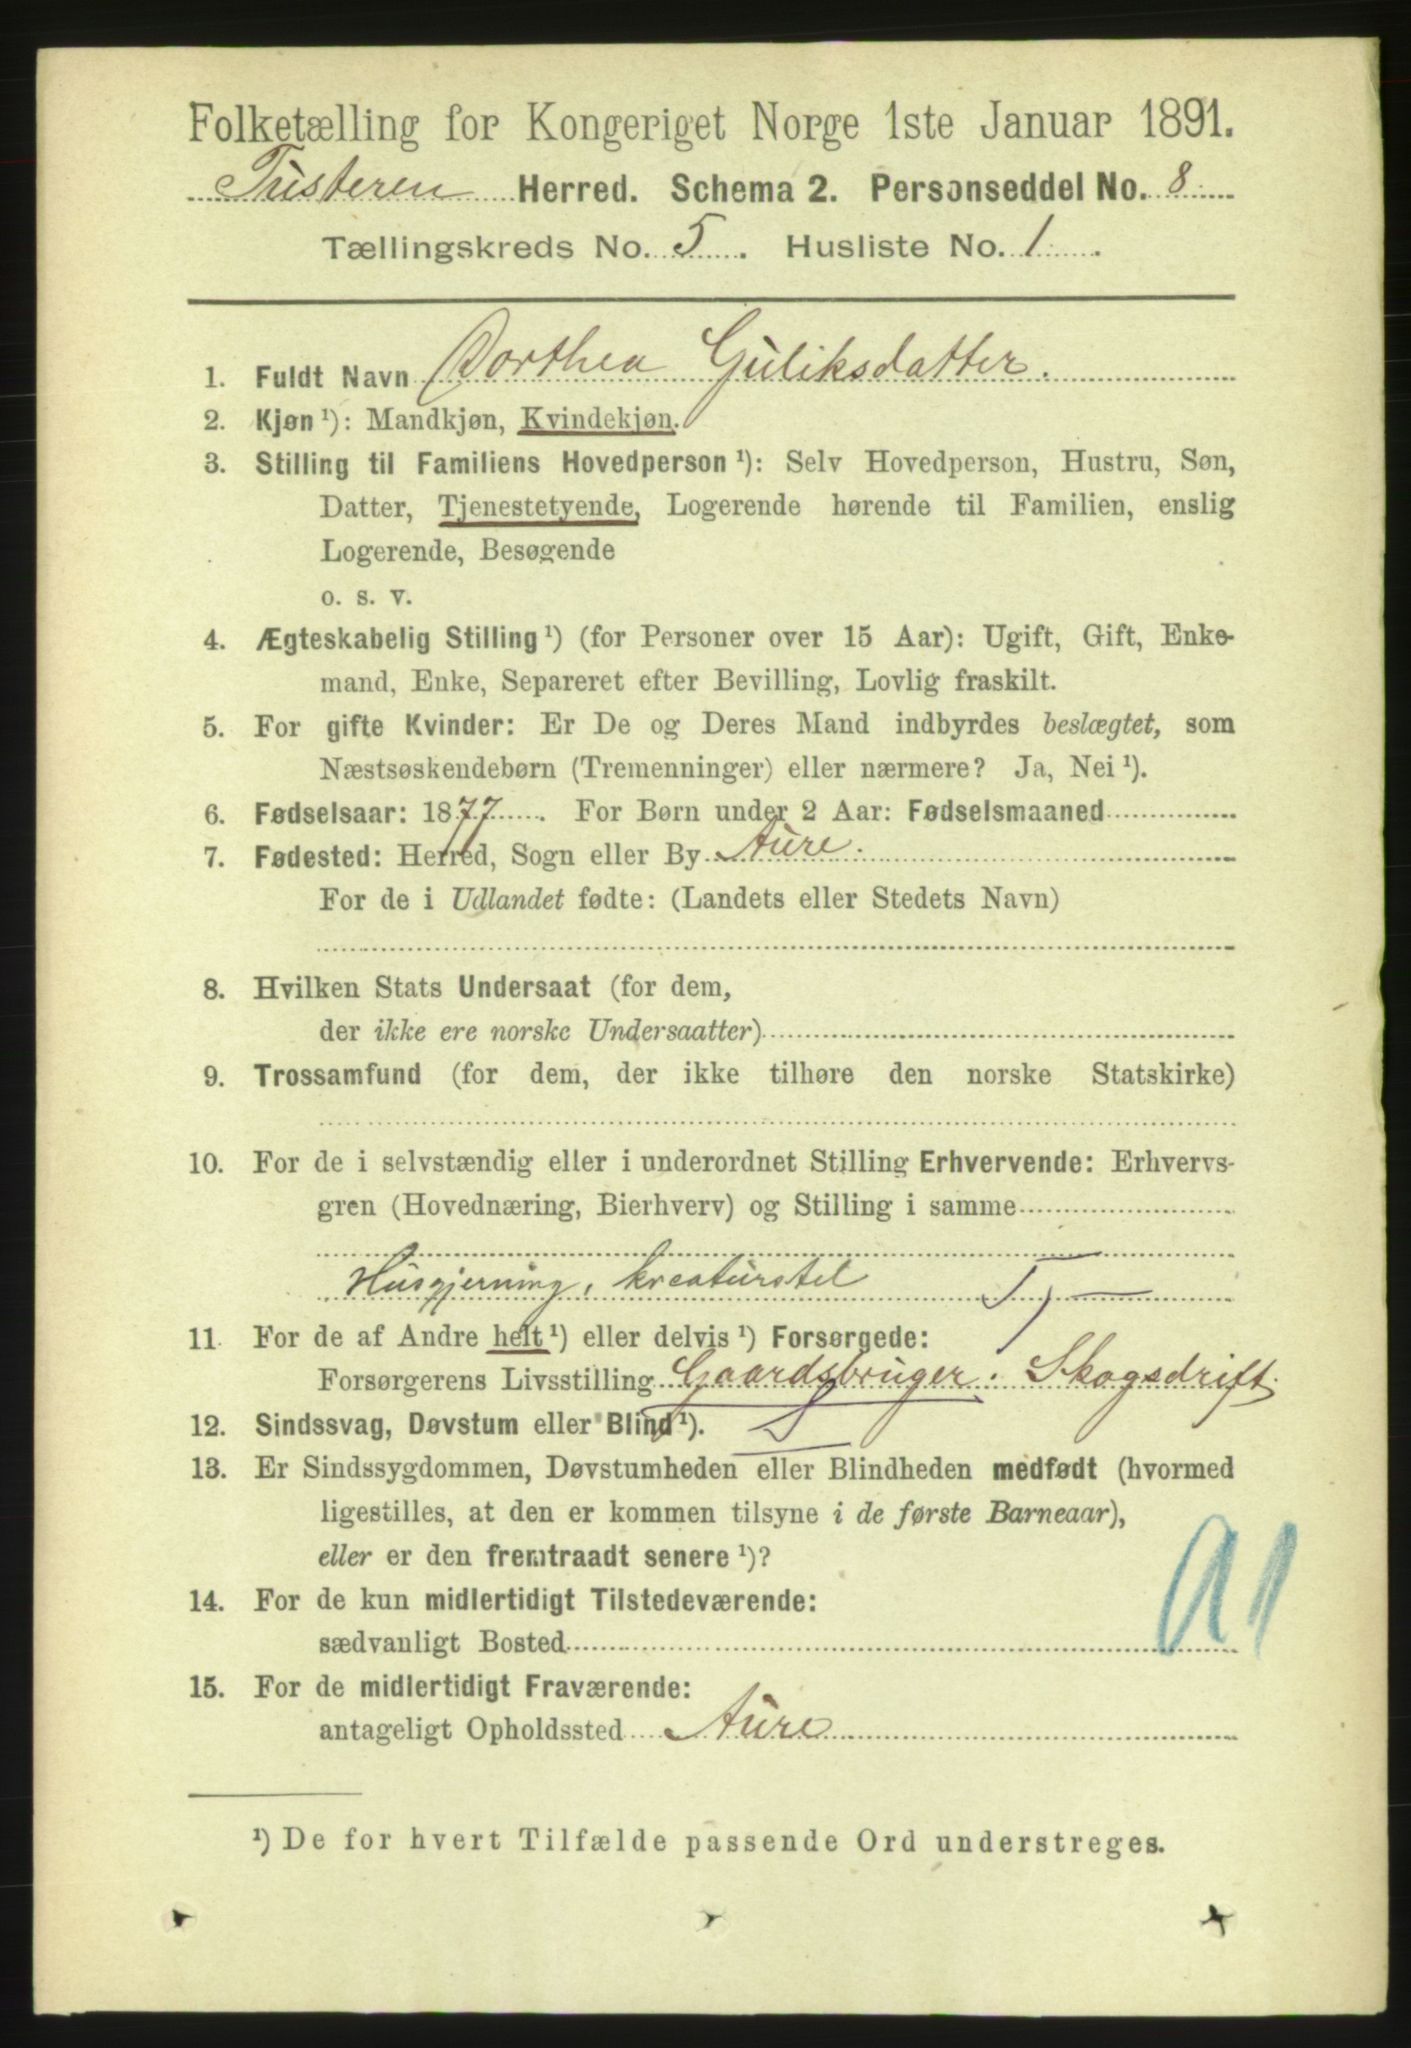 Folketælling for Kongeriget Norge 1ste Januar 1891.
Tusteren Herred. Schema 2. Personseddel No. 8
Tællingskreds No. 5. Husliste No. 1.
1. Fuldt Navn Dorthea Guliksdatter.
2. Kjøn ¹): Mandkjøn, Kvindekjøn.
3. Stilling til Familiens Hovedperson ¹): Selv Hovedperson, Hustru, Søn,
Datter, Tjenestetyende, Logerende hørende til Familien, enslig
Logerende, Besøgende
o. s. v.
4. Ægteskabelig Stilling ¹) (for Personer over 15 Aar): Ugift, Gift, Enke-
mand, Enke, Separeret efter Bevilling, Lovlig fraskilt.
5. For gifte Kvinder: Er De og Deres Mand indbyrdes beslægtet, som
Næstsøskendebørn (Tremenninger) eller nærmere? Ja, Nei ¹).
6. Fødselsaar: 1877. For Børn under 2 Aar: Fødselsmaaned
7. Fødested: Herred, Sogn eller By Aure.
For de i Udlandet fødte: (Landets eller Stedets Navn)
8. Hvilken Stats Undersaat (for dem,
der ikke ere norske Undersaatter)
9. Trossamfund (for dem, der ikke tilhøre den norske Statskirke)
10. For de i selvstændig eller i underordnet Stilling Erhvervende: Erhvervs-
gren (Hovednæring, Bierhverv) og Stilling i samme
Husgjerning, kreaturstel
11. For de af Andre helt ¹) eller delvis ¹) Forsørgede:
Forsørgerens Livsstilling Gaardsbruger. Skogsdrift.
12. Sindssvag, Døvstum eller Blind ¹).
13. Er Sindssygdommen, Døvstumheden eller Blindheden medfødt (hvormed
ligestilles, at den er kommen tilsyne i de første Barneaar),
eller er den fremtraadt senere ¹)?
14. For de kun midlertidigt Tilstedeværende:
sædvanligt Bosted
15. For de midlertidigt Fraværende:
antageligt Opholdssted Aure
¹) De for hvert Tilfælde passende Ord understreges.